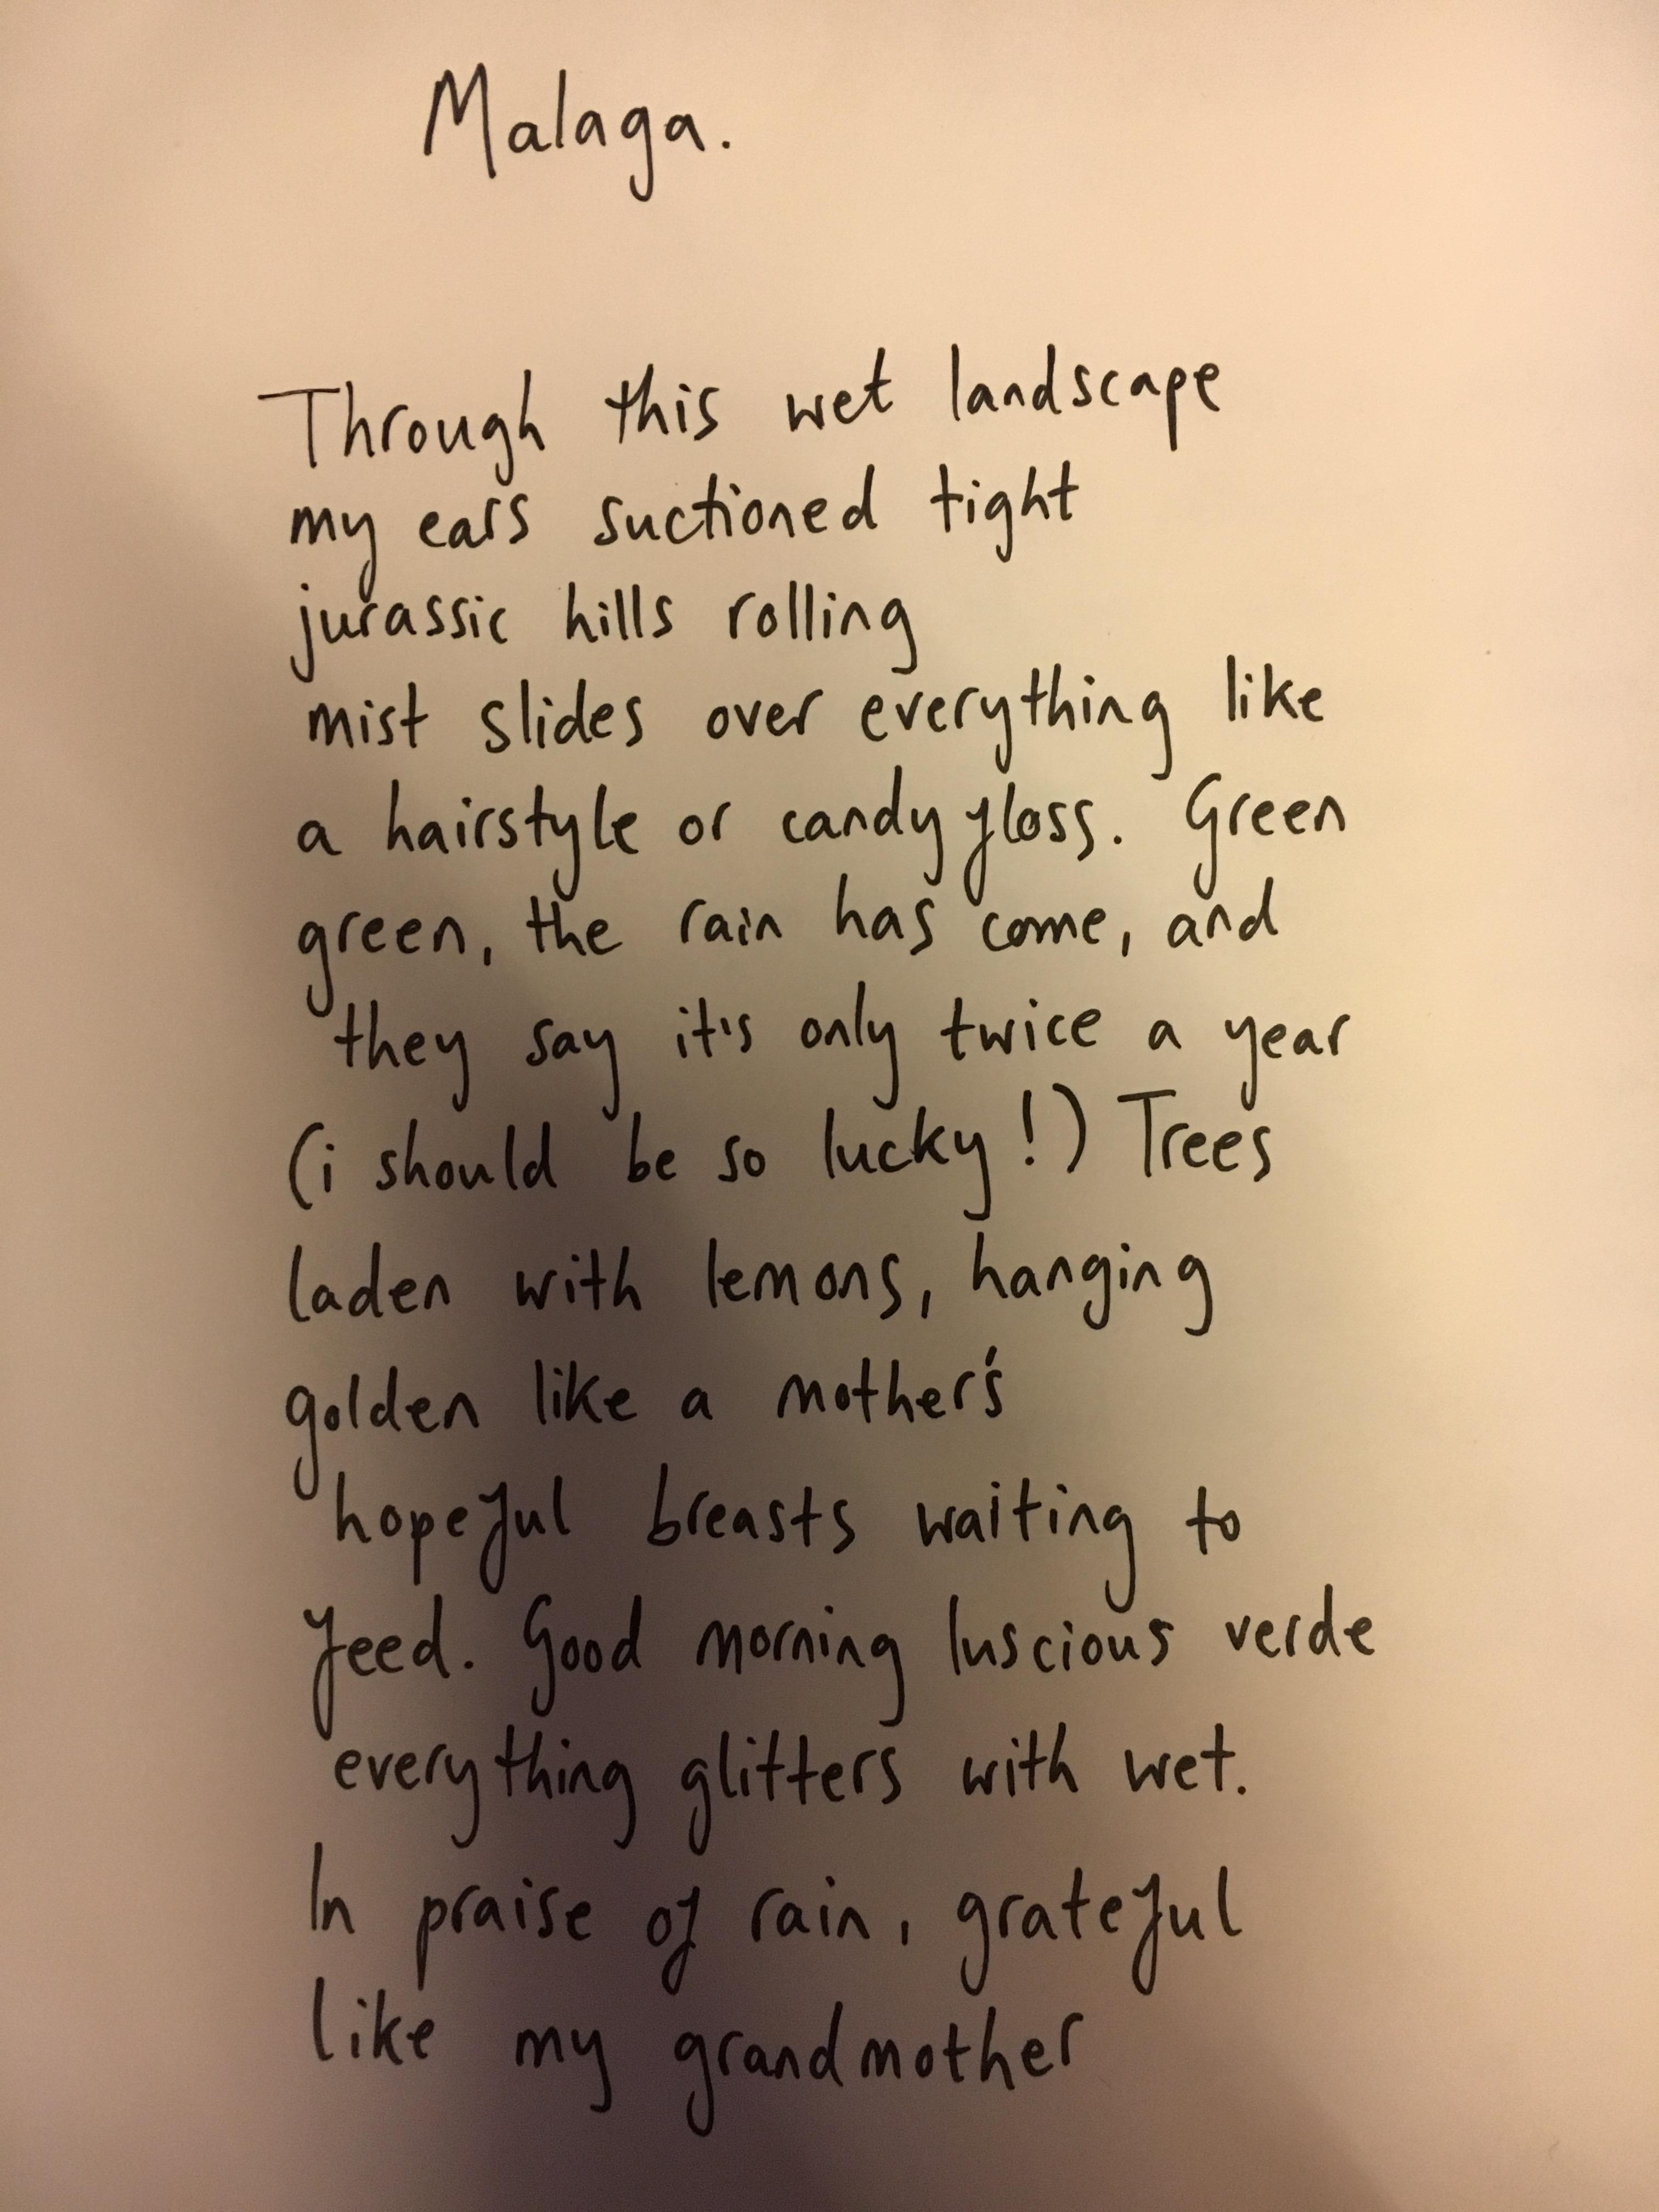 Malaga.
Through this wet landscape
my ears suctioned tight
jurassic hills rolling
mist slides over everything like
a hairstyle or candy floss. Green
green, the rain has come, and
they say it's only twice a year
(i should be so lucky!) Trees
laden with lemons, hanging
golden like a mother's
hopeful breasts waiting to
feed. Good morning luscious verde
everything glitters with wet.
In praise of rain, grateful
like my grandmother